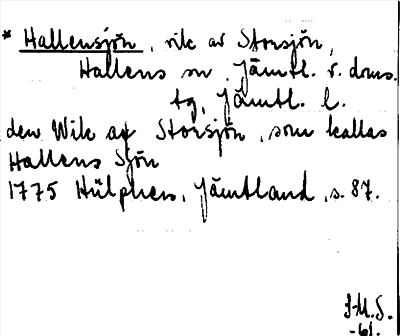 * Hallensjön, vik av Storsjön,
Hallens sn, Jämtl. v. doms.
tg, Jämtl. l.
den Wik af Storsjön, som kallas
Hallens Sjön
1775 Hülphers, Jämtland, s. 87.
S-M.S.
-61.